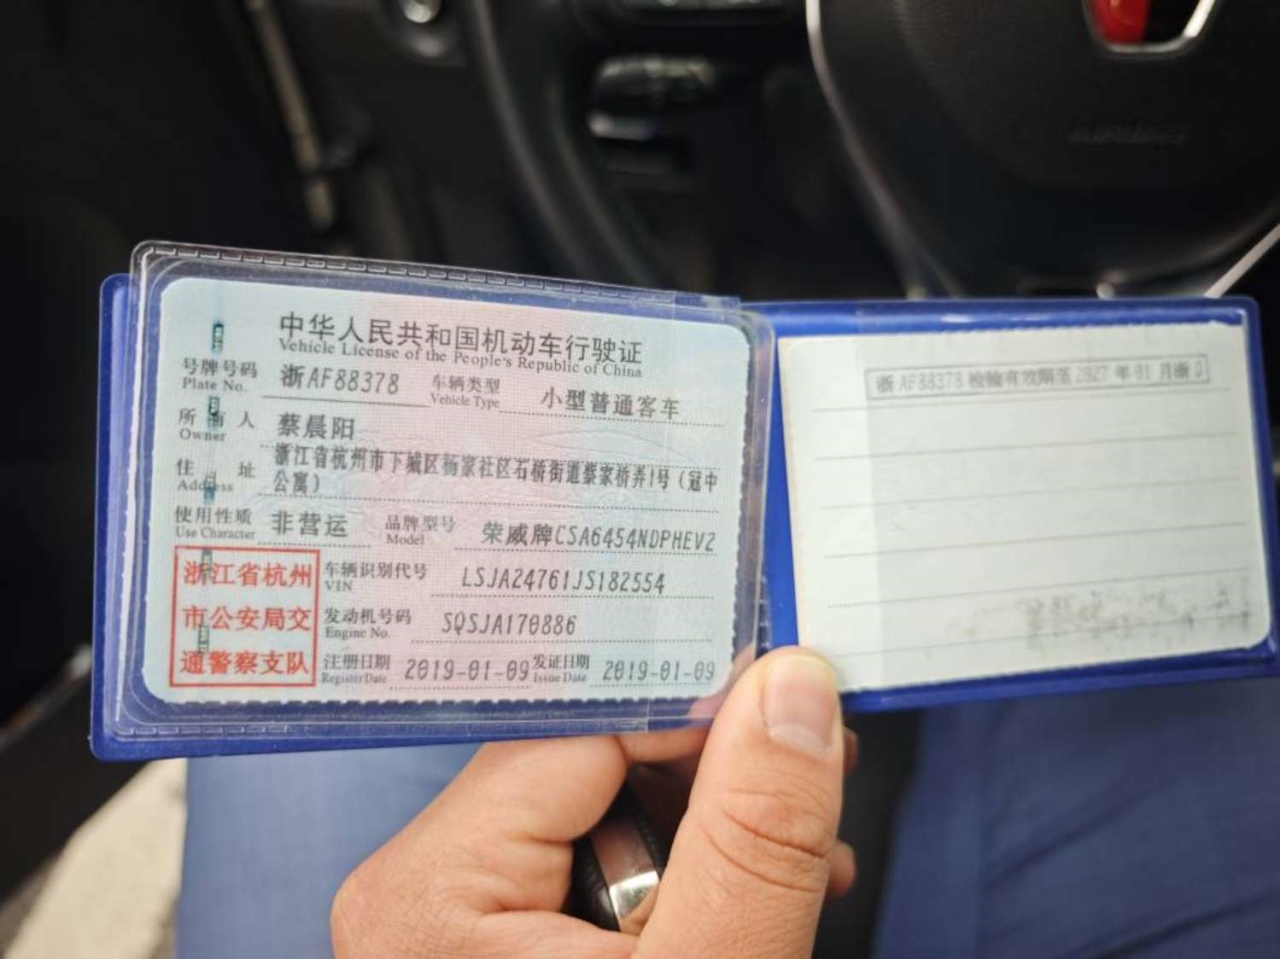 中华人民共和国机动车行驶证
Vehicle License of the People's Republic of China
号牌号码 浙AF88378 车辆类型 小型普通客车
Plate No. Vehicle Type
所有人 蔡晨阳
Owner
住址 浙江省杭州市下城区杨家社区石桥街道蔡家桥弄1号（冠中
Address 公寓）
使用性质 非营运 品牌型号 荣威牌CSA6454NDPHEV2
Use Character Model
浙江省杭州 车辆识别代号 LSJA24761JS182554
VIN
市公安局交 发动机号码 SQSJA170886
Engine No.
通警察支队 注册日期 2019-01-09 发证日期 2019-01-09
Register Date Issue Date
浙AF88378 检验有效期至 2027 年 01 月浙